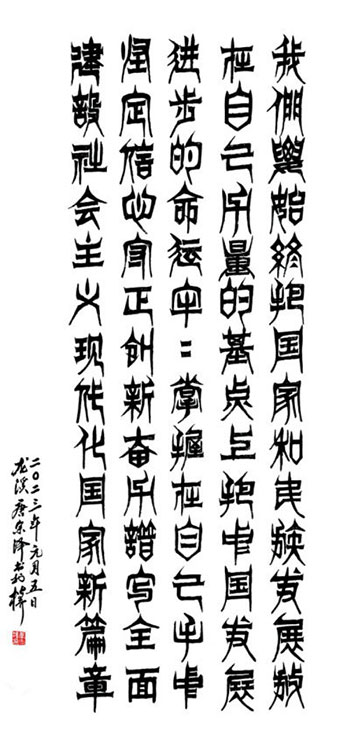 我們要始终把国家和民族发展放
在自己力量的基点上把中国发展
进步的命运牢〻掌握在自己手中
坚定信心守正创新奋力谱写全面
建设社会主义现代化国家新篇章
二〇二三年元月五日
龙溪唐宗泽书